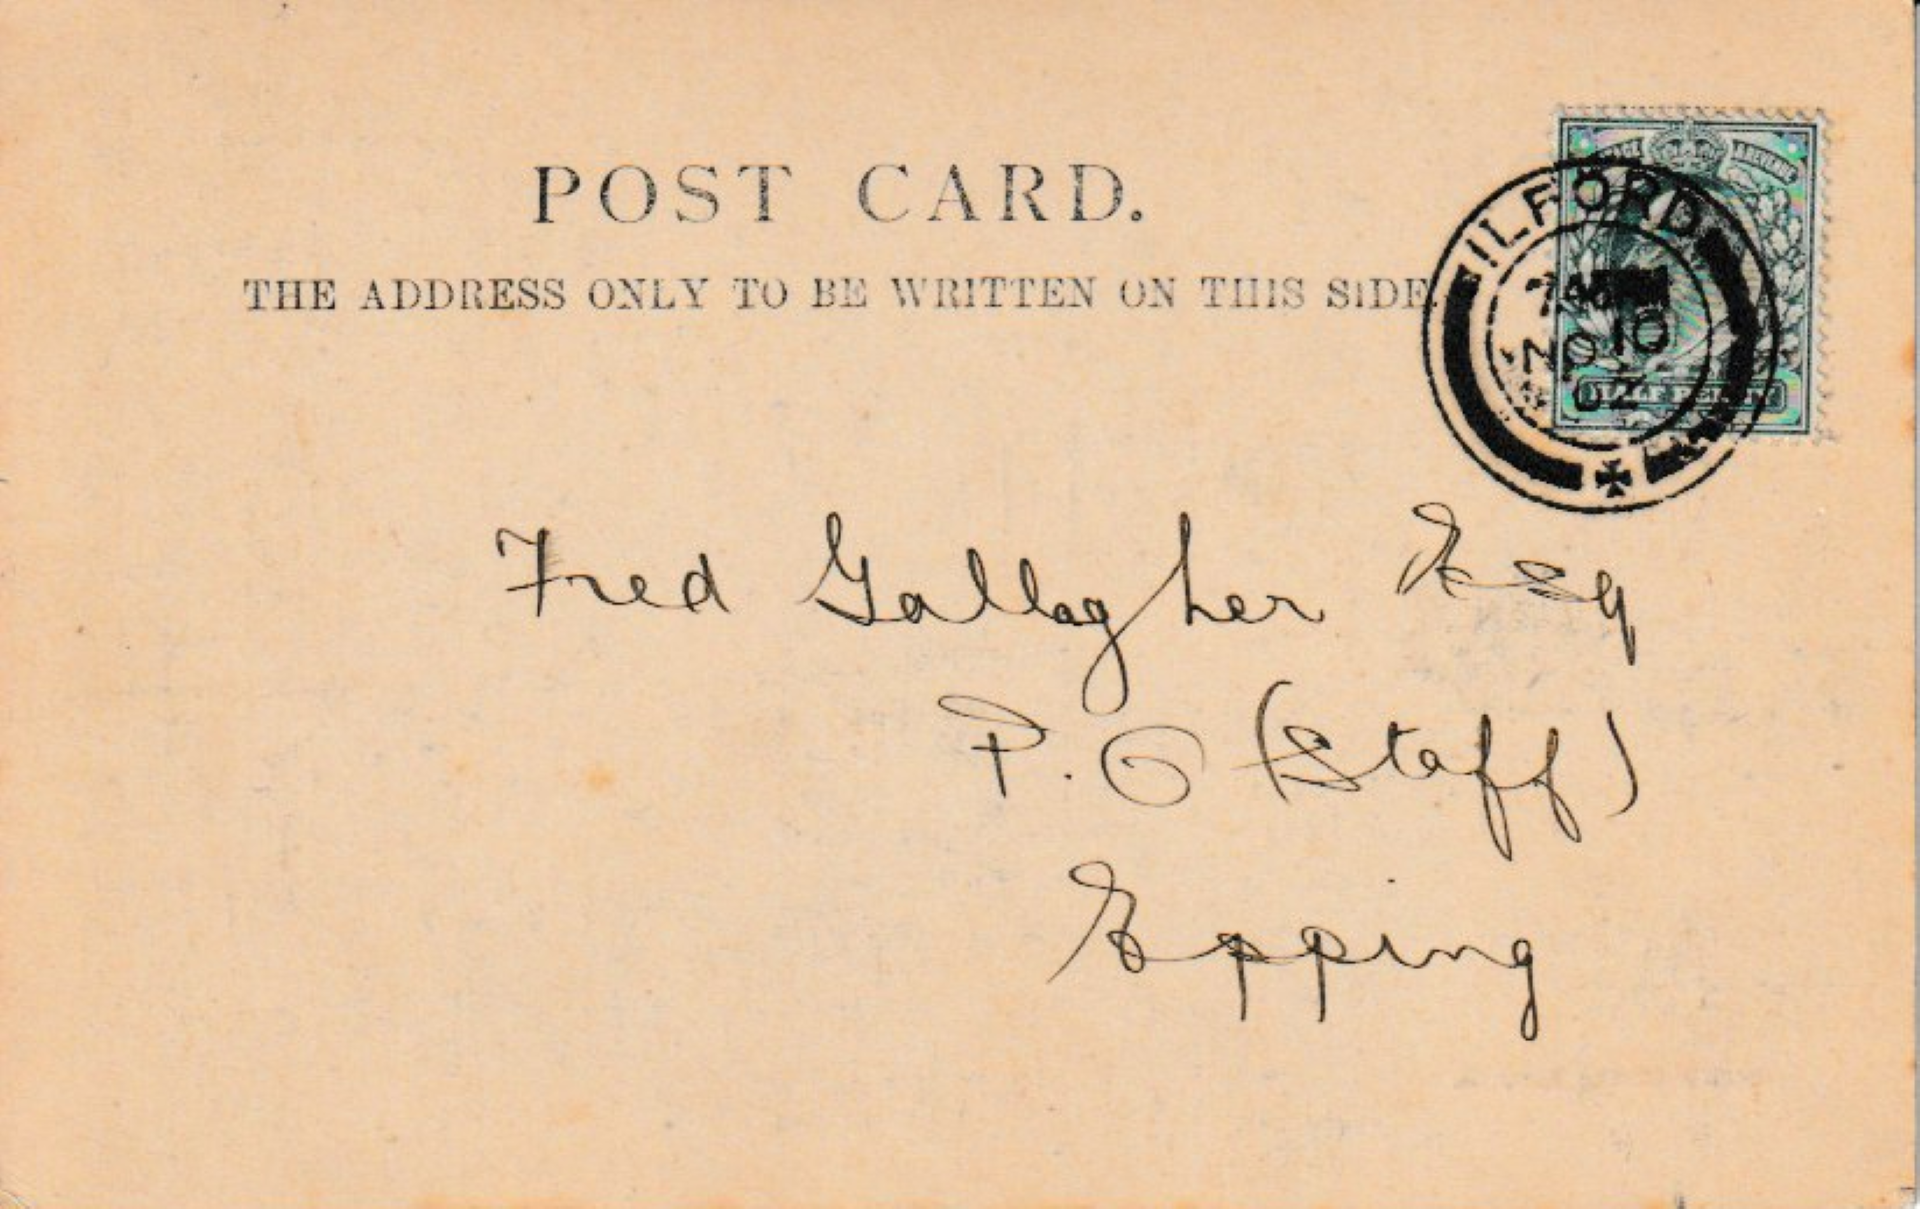 POST CARD.
THE ADDRESS ONLY TO BE WRITTEN ON THIS SIDE.
POSTAGE & REVENUE
ILFORD
NO 10
02
HALF PENNY
Fred Gallagher Esq
P.O (Staff)
Epping